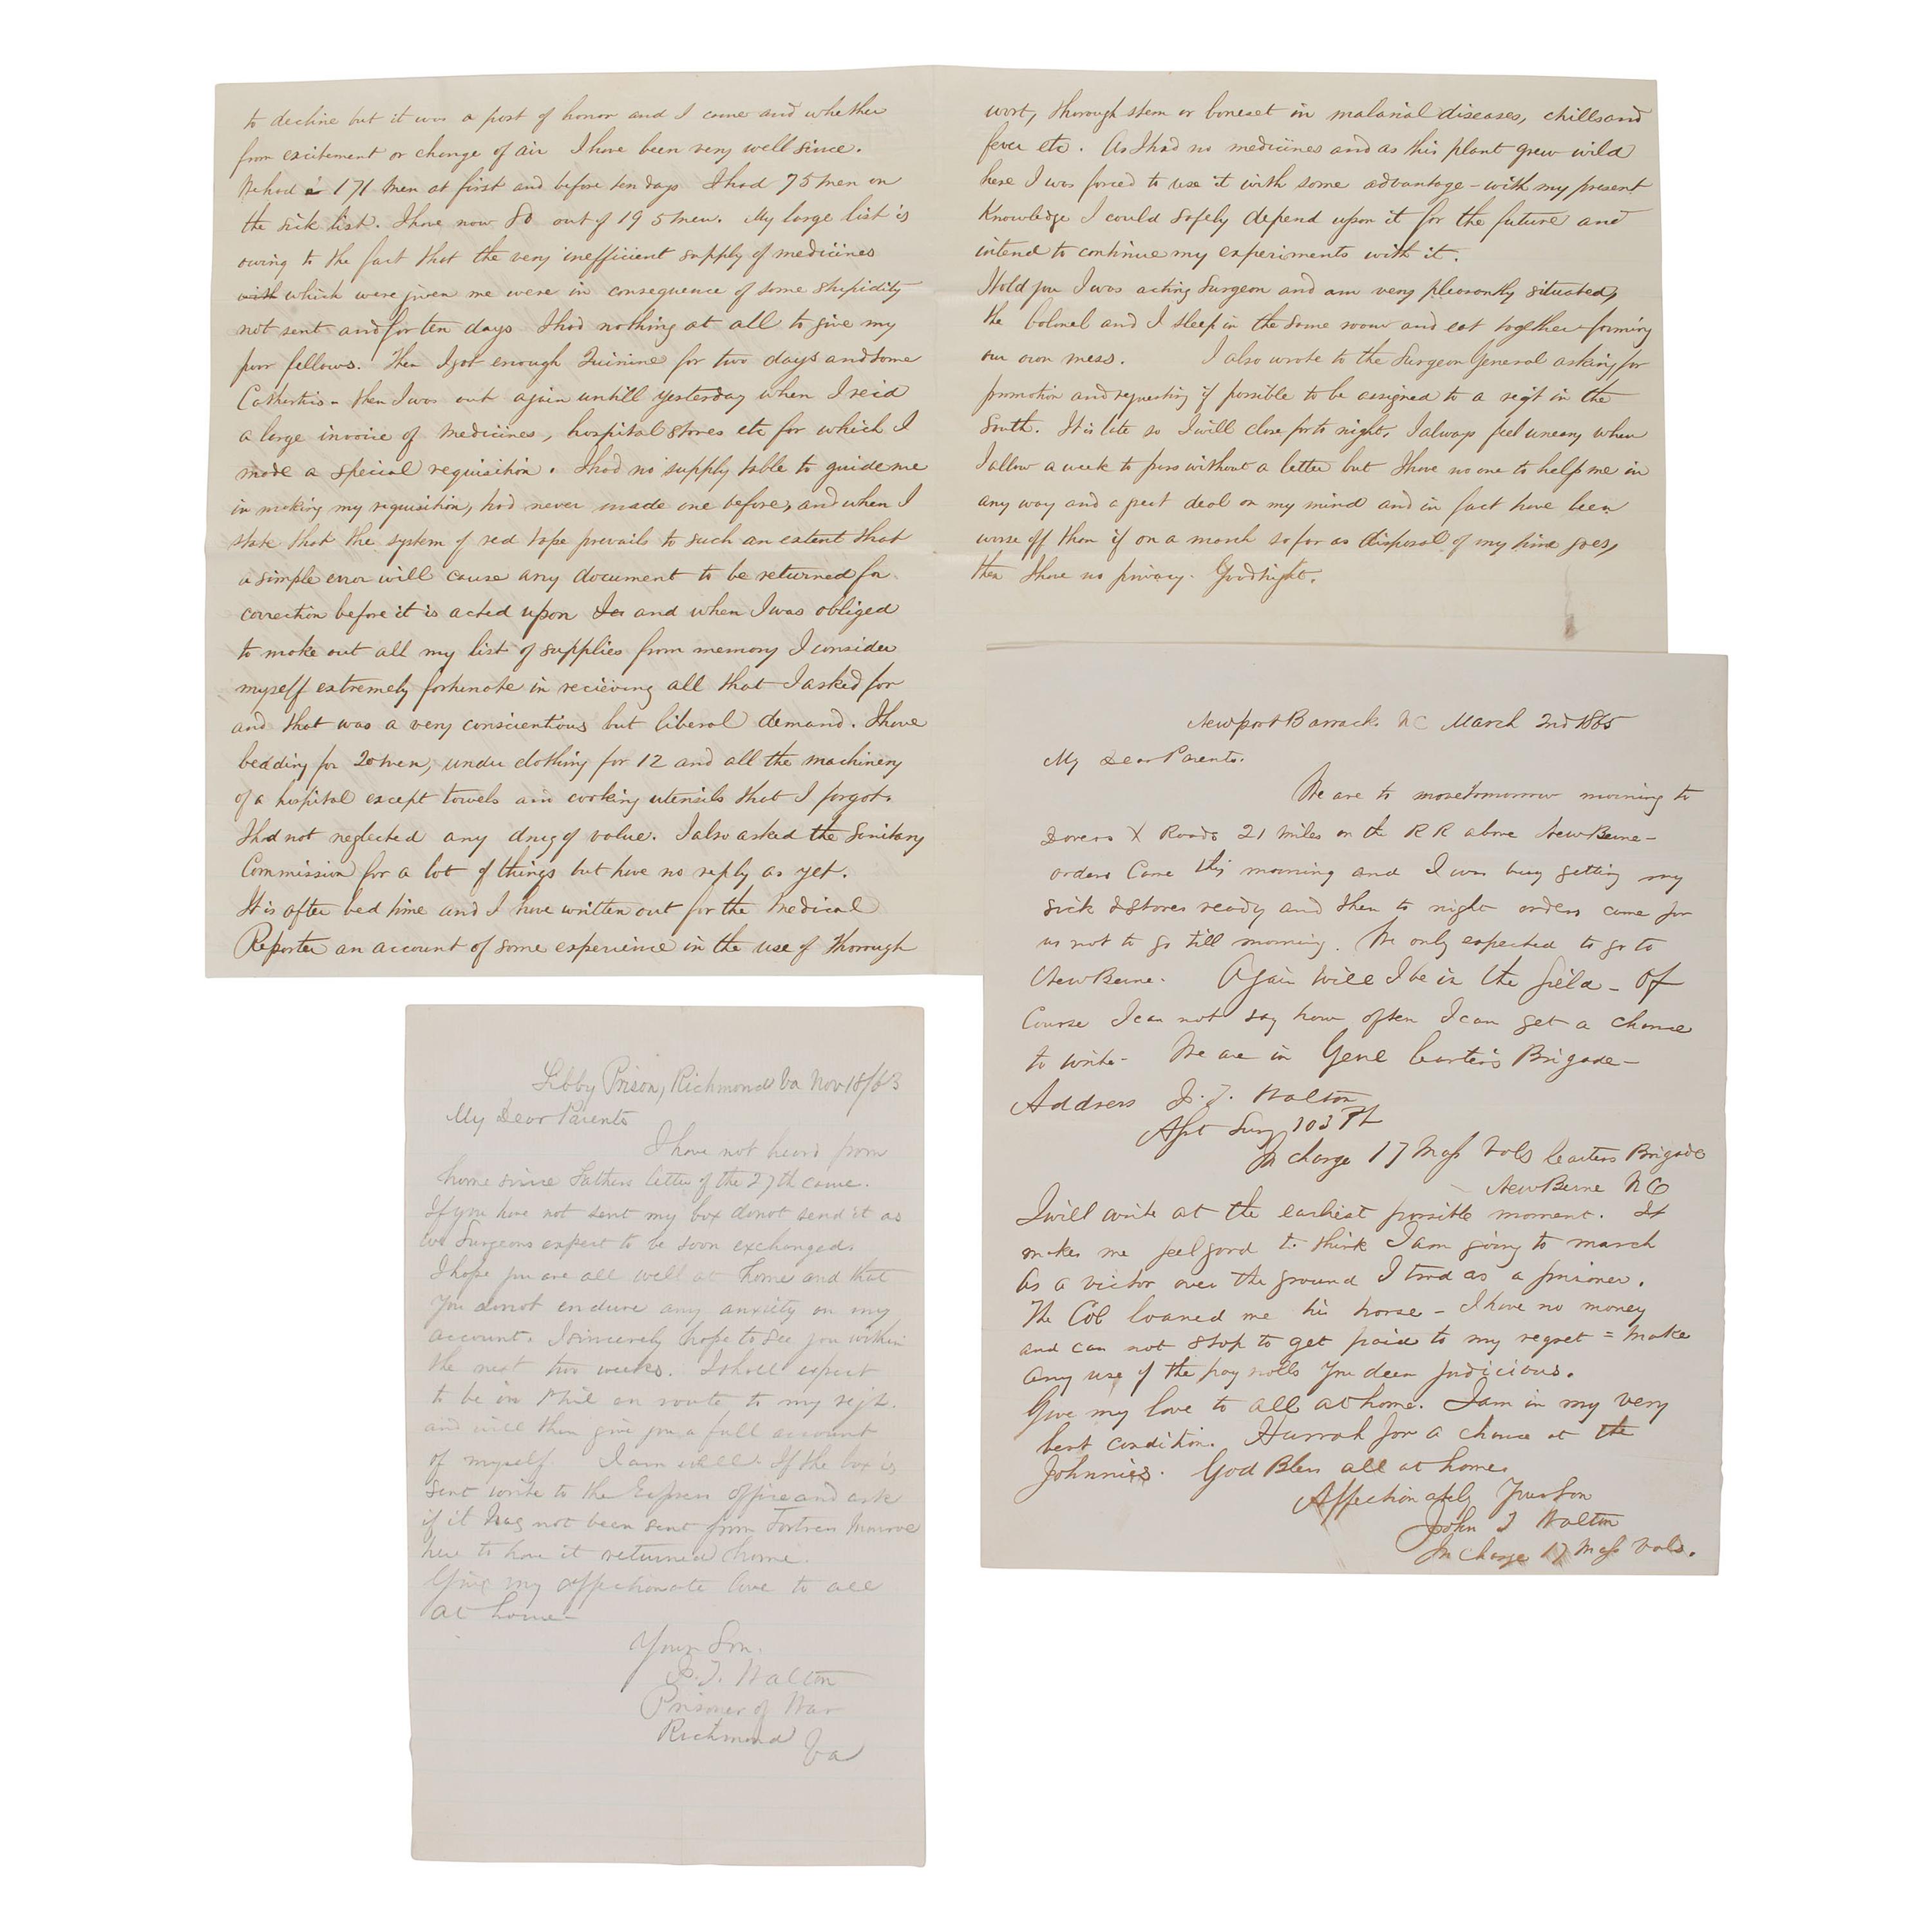 to decline but it was a post of honor and I came and whether
from excitement or change of air I have been very well since.
We had 171 men at first and before ten days I had 75 men on
the sick list. I have now 80 out of 195 men. My large list is
owing to the fact that the very inefficient supply of medicines
with which were given me were in consequence of some stupidity
not sent and for ten days I had nothing at all to give my
poor fellows. Then I got enough Quinine for two days and some
Cathartics - then I was out again untill yesterday when I recid
a large invoice of medicines, hospital stores etc for which I
made a special requisition. I had no supply table to guide me
in making my requisition, had never made one before, and when I
state that the system of red tape prevails to such an extent that
a simple error will cause any document to be returned for
correction before it is acted upon and when I was obliged
to make out all my list of supplies from memory I consider
myself extremely fortunate in recieving all that I asked for
and that was a very conscientious but liberal demand. I have
bedding for 20 men, under clothing for 12 and all the machinery
of a hospital except towels and cooking utensils that I forgot.
I had not neglected any drug of value. I also asked the Sanitary
Commission for a lot of things but have no reply as yet.
It is after bed time and I have written out for the Medical
Reporter an account of some experience in the use of thorough
wort, thorough stem or boneset in malarial diseases, chills and
fever etc. As I had no medicines and as this plant grew wild
here I was forced to use it with some advantage - with my present
Knowledge I could safely depend upon it for the future and
intend to continue my experiments with it.
I told you I was acting Surgeon and am very pleasantly situated,
the Colonel and I sleep in the same room and eat together forming
our own mess. I also wrote to the Surgeon General asking for
promotion and requesting if possible to be assigned to a regt in the
South. It is late so I will close for to night. I always feel uneasy when
I allow a week to pass without a letter but I have no one to help me in
any way and a great deal on my mind and in fact have been
worse off than if on a march so far as disposal of my time goes,
then I have no privacy. Good night.
Newport Barracks NC March 2nd 1865
My Dear Parents.
We are to move tomorrow morning to
Dovers X Roads 21 miles on the RR above NewBerne -
orders Came this morning and I was busy getting my
sick & stores ready and then to night orders came for
us not to go till morning. We only expected to go to
NewBerne. Again will I be in the field - Of
Course I can not say how often I can get a chance
to write - We are in Genl Carters Brigade -
Address J. T. Walton
Asst Surg 103 Pa
In charge 17 Mass Vols Carters Brigade
NewBerne NC
I will write at the earliest possible moment. It
makes me feel good to think I am going to march
as a victor over the ground I trod as a prisoner.
The Col loaned me his horse - I have no money
and can not stop to get paid to my regret = Make
any use of the pay rolls you deem judicious.
Give my love to all at home. I am in my very
best condition. Hurrah for a chance at the
Johnnies. God Bless all at home
Affectionately Your Son
John T Walton
In charge 17 Mass Vols.
Libby Prison, Richmond Va Nov 18/63
My Dear Parents
I have not heard from
home since Fathers letter of the 27th came.
If you have not sent my box donot send it as
we Surgeons expect to be soon exchanged.
I hope you are all well at home and that
you donot endure any anxiety on my
account. I sincerely hope to see you within
the next two weeks. I shall expect
to be in Phil en route to my regt.
and will then give you a full account
of myself. I am well. If the box is
sent write to the Express office and ask
if it has not been sent from Fortress Monroe
here to have it returned home.
Give my affectionate love to all
at home -
Your Son.
J. T. Walton
Prisoner of War
Richmond
Va